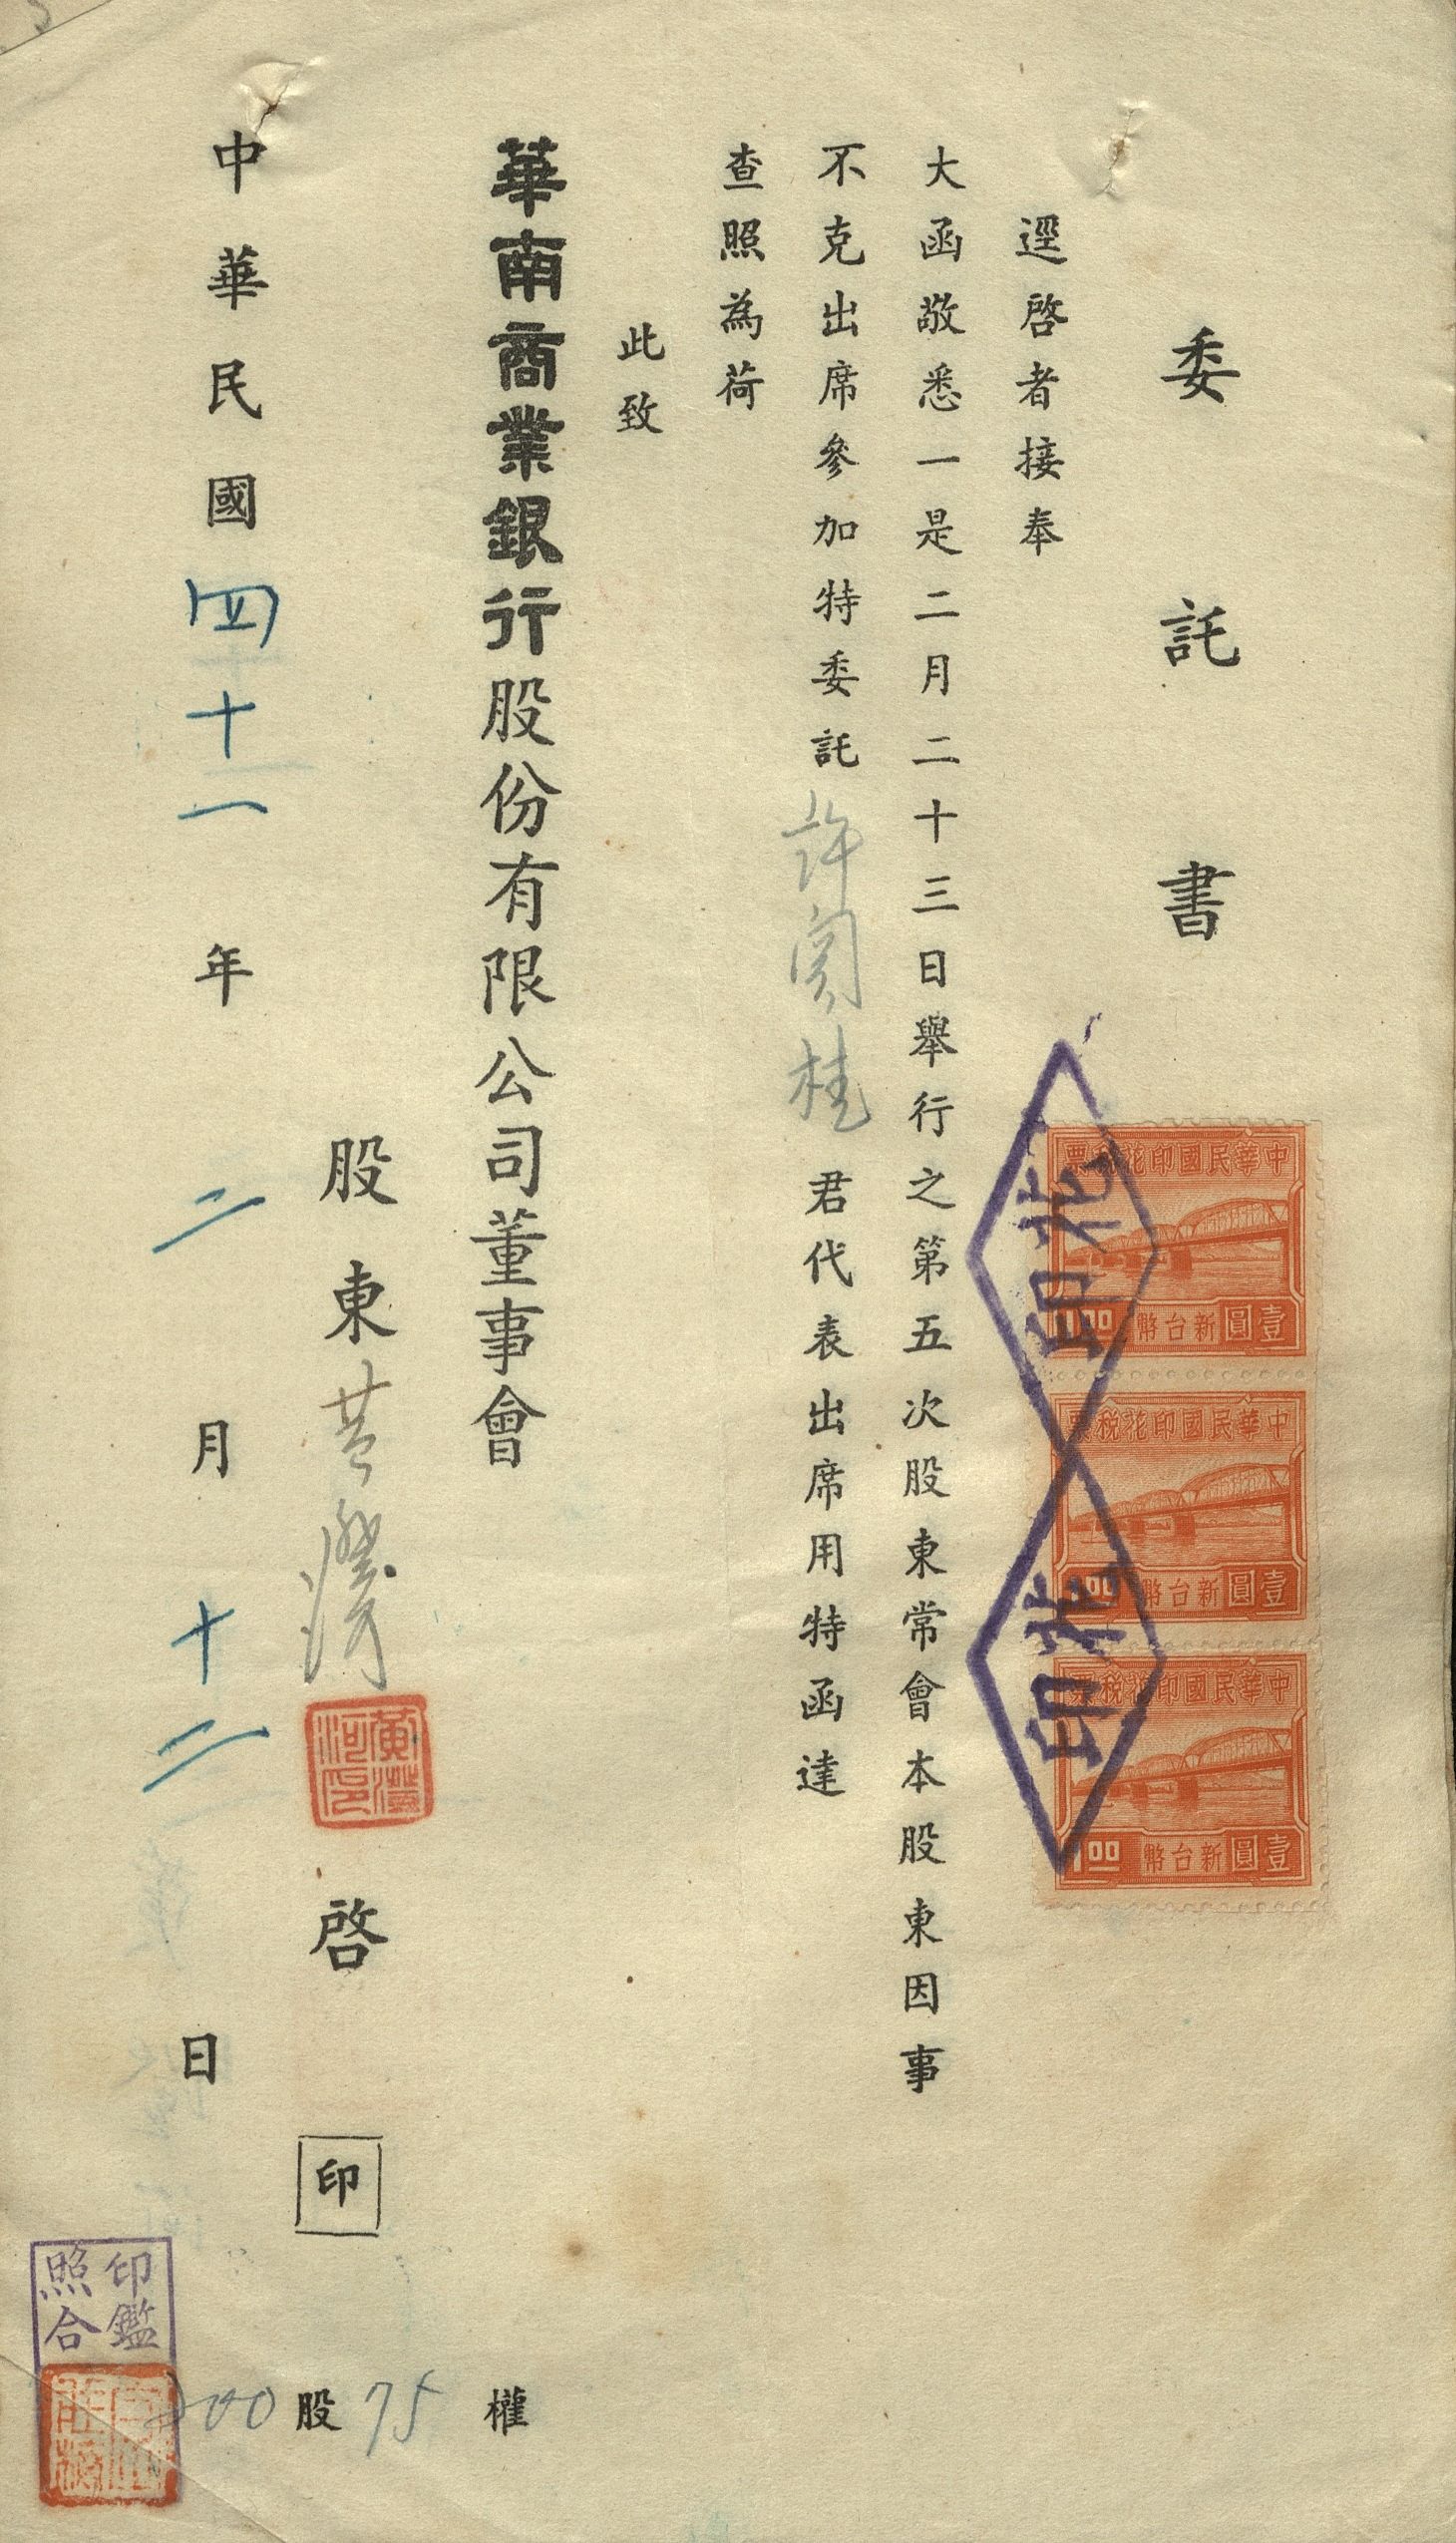 委託書
逕啓者接奉
大函敬悉一是二月二十三日舉行之第五次股東常會本股東因事
不克出席參加特委託許桂君代表出席用特函達
查照為荷
此致
華南商業銀行股份有限公司董事會
股東黃啓
印
中華民國四十一年二月十二日
股75權
中華民國印花稅票
1.00 新台幣壹圓
中華民國印花稅票
1.00 新台幣壹圓
中華民國印花稅票
1.00 新台幣壹圓
印花
印花
黃
河印
印鑑
照合